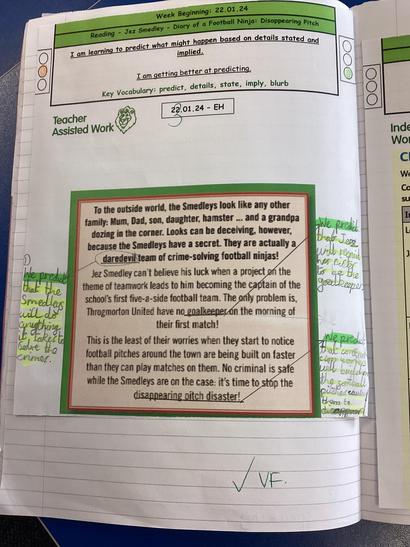 Week Beginning: 22.01.24
Reading - Jez Smedley - Diary of a Football Ninja: Disappearing Pitch
I am learning to predict what might happen based on details stated and
implied.
I am getting better at predicting.
Key Vocabulary: predict, details, state, imply, blurb
Teacher
Assisted Work
23.01.24 - EH
To the outside world, the Smedleys look like any other
family: Mum, Dad, son, daughter, hamster ... and a grandpa
dozing in the corner. Looks can be deceiving, however,
because the Smedleys have a secret. They are actually a
daredevil team of crime-solving football ninjas!
Jez Smedley can't believe his luck when a project on the
theme of teamwork leads to him becoming the captain of the
school's first five-a-side football team. The only problem is,
Throgmorton United have no goalkeeper on the morning of
their first match!
This is the least of their worries when they start to notice
football pitches around the town are being built on faster
than they can play matches on them. No criminal is safe
while the Smedleys are on the case: it's time to stop the
disappearing pitch disaster!
We predict
that the
Smedleys
will do
anything
it takes to
solve the
crimes.
We predict
that Jez
will
to be the
goalkeeper
We predict
that
will
the football
to
disappear
✓ VF.
Inde
Wor